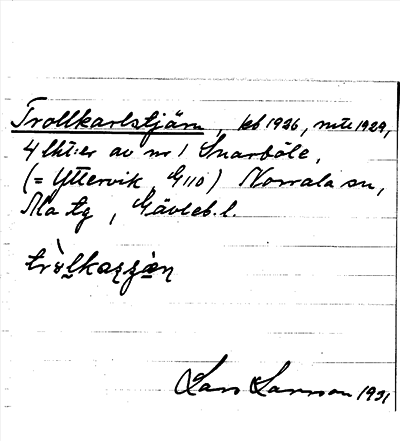 Trollkarlstjärn, kb 1926, mtb 1929,
4 lht:er av nr 1 Snarböle,
(= Yttervik, G110) Norrala sn,
Ala tg, Gävleb. l.
Lars Larsson 1931